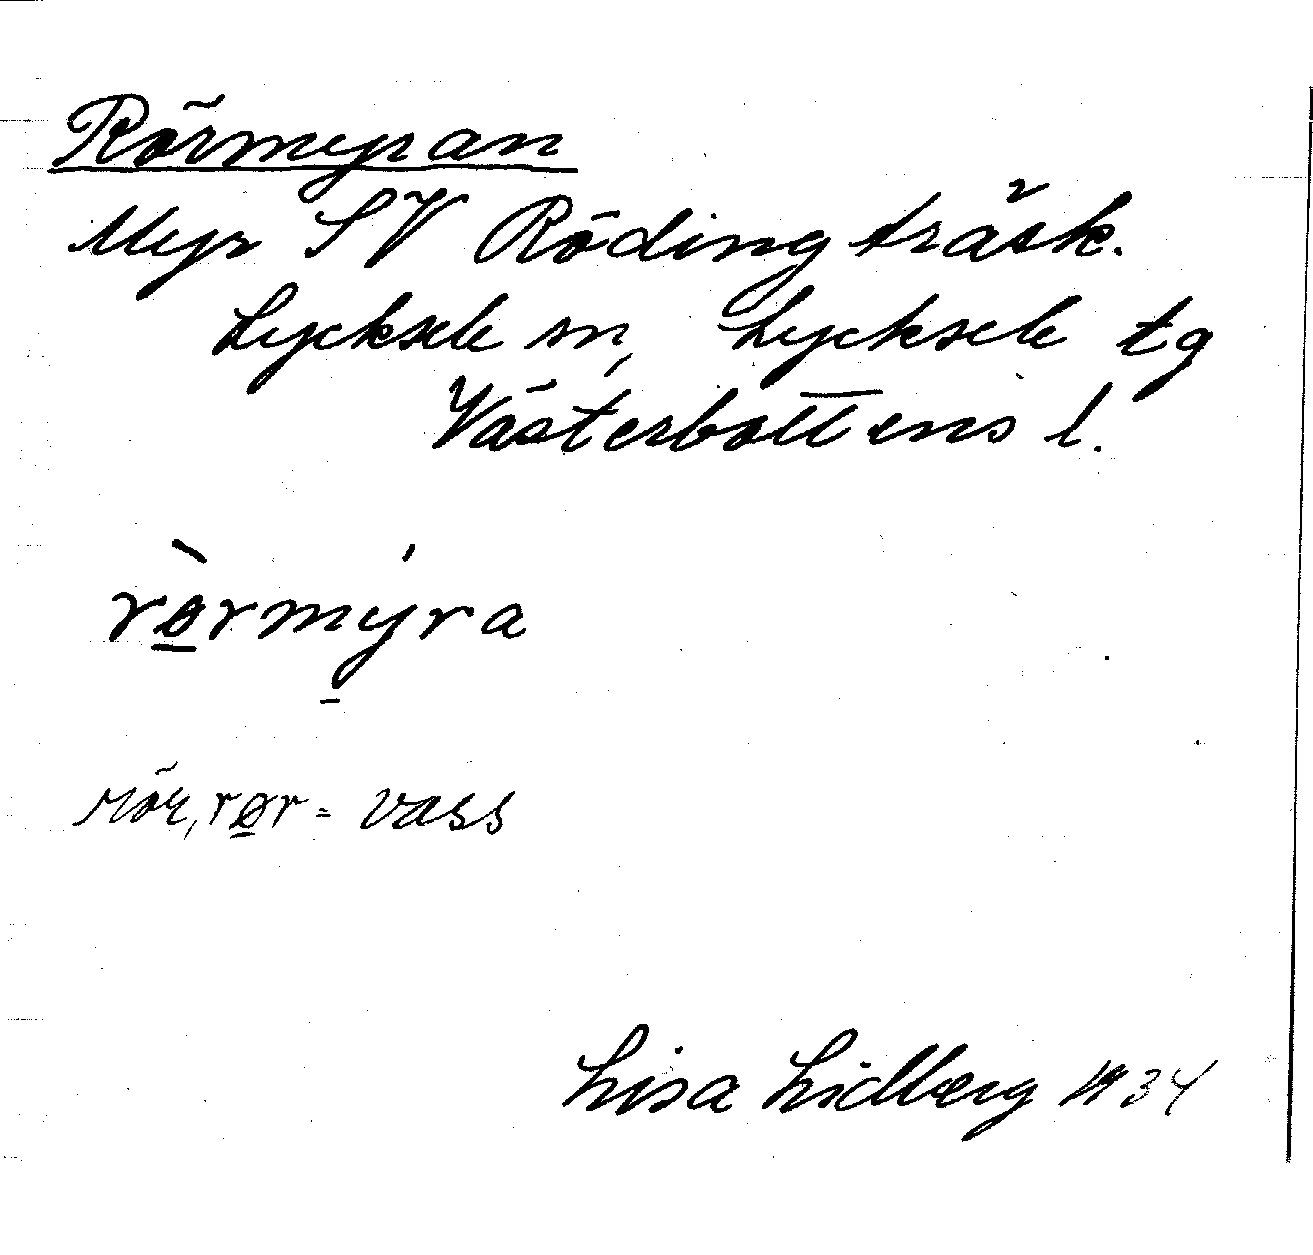 Rörmyran
Myr SV Rödingträsk.
Lycksele sn, Lycksele tg
Västerbottens l.
rø̠̀rmý̠ra
rör, rø̠r = vass
Lisa Lidberg 1934